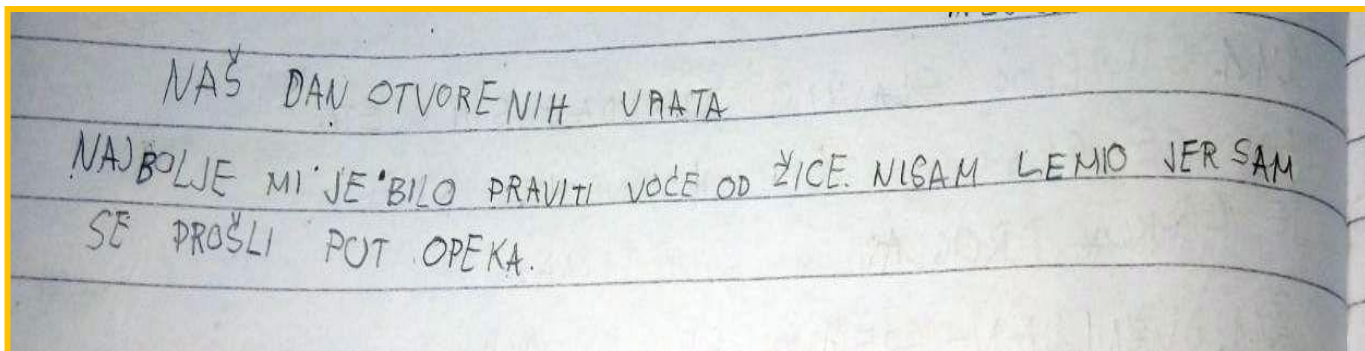 NAŠ DAN OTVORENIH VRATA
NAJBOLJE MI JE BILO PRAVITI VOĆE OD ŽICE. NISAM LEMIO JER SAM
SE PROŠLI PUT OPEKA.